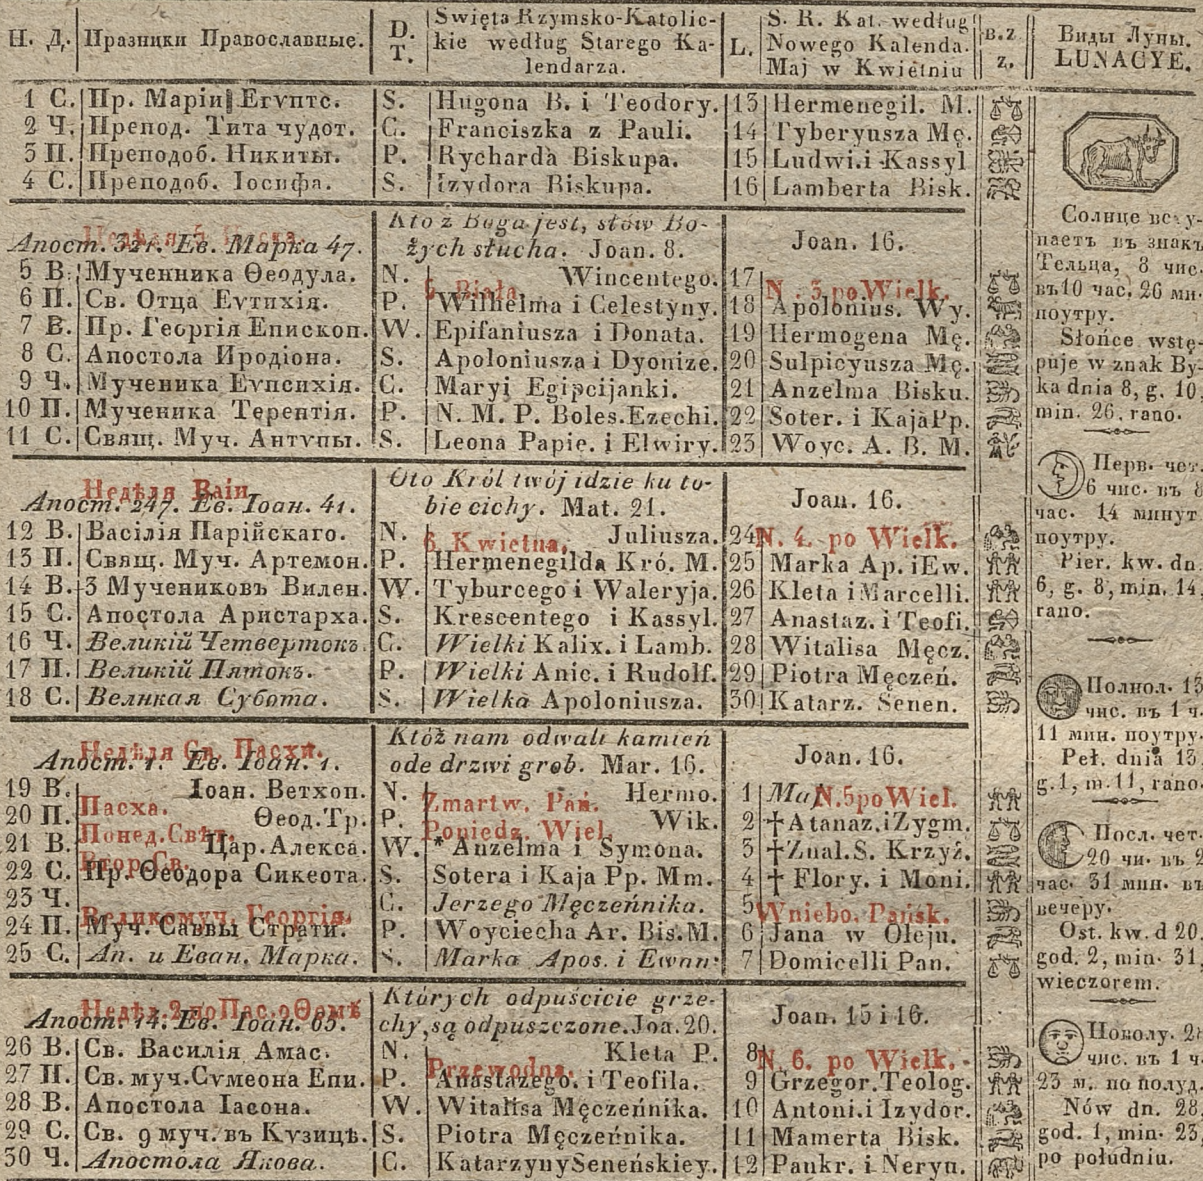 Н. Д. Празники Православные. D. T. Swięta Rzymsko-Katolic- L. S. R. Kat. według в.z Виды Луны.
kie według Starego Ka- Nowego Kalenda. z. LUNACYE.
lendarza. Maj w Kwietniu
1 С. Пр. Маріи Егѵптс. S. Hugona B. i Teodory. 13 Hermenegil. M.
2 Ч. Препод. Тита чудот. C. Franciszka z Pauli. 14 Tyberyusza Mę.
3 П. Преподоб. Никиты. P. Rycharda Biskupa. 15 Ludwi. i Kassyl
4 С. Преподоб. Іосифа. S. Izydora Biskupa. 16 Lamberta Bisk.
Апост. 321. Ев. Марка 47. Kto z Boga jest, słów Bo-
żych słucha. Joan. 8. Joan. 16.
5 В. Мученника Ѳеодула. N. 5. Biała Wincentego. 17 N. 3 po Wielk.
6 П. Св. Отца Еѵтихія. P. Wilhelma i Celestyny. 18 Apolonius. Wy.
7 В. Пр. Георгія Епископ. W. Epifaniusza i Donata. 19 Hermogena Mę.
8 С. Апостола Иродіона. S. Apoloniusza i Dyonize. 20 Sulpicyusza Mę.
9 Ч. Мученика Еѵпсихія. C. Maryi Egipcijanki. 21 Anzelma Bisku.
10 П. Мученика Терентія. P. N. M. P. Boles. Ezechi. 22 Soter. i Kaja Pp.
11 С. Свящ. Муч. Антѵпы. S. Leona Papie. i Elwiry. 23 Woyc. A. B. M.
Недѣля Ваіи
Апост. 247. Ев. Іоан. 41. Oto Król twój idzie ku to-
bie cichy. Mat. 21. Joan. 16.
12 В. Василія Парійскаго. N. 6. Kwietna. Juliusza. 24 N. 4. po Wielk.
13 П. Свящ. Муч. Артемон. P. Hermenegilda Kró. M. 25 Marka Ap. i Ew.
14 В. 3 Мучениковъ Вилен. W. Tyburcego i Waleryja. 26 Kleta i Marcelli.
15 С. Апостола Аристарха. S. Krescentego i Kassyl. 27 Anastaz. i Teofi.
16 Ч. Великій Четвертокъ. C. Wielki Kalix. i Lamb. 28 Witalisa Męcz.
17 П. Великій Пятокъ. P. Wielki Anic. i Rudolf. 29 Piotra Męczeń.
18 С. Великая Субота. S. Wielka Apoloniusza. 30 Katarz. Senen.
Недѣля Св. Пасхи.
Апост. 1. Ев. Іоан. 1. Któż nam odwali kamień
ode drzwi grob. Mar. 16. Joan. 16.
19 В. Пасха. Іоан. Ветхоп. N. Zmartw. Pań. Hermo. 1 Maj N. 5 po Wiel.
20 П. Понед. Свѣт. Ѳеод. Тр. P. Poniedz. Wiel. Wik. 2 † Atanaz. i Zygm.
21 В. Втор. Св. Цар. Алекса. W. * Anzelma i Symona. 3 † Znal. S. Krzyż.
22 С. Пр. Ѳеодора Сикеота. S. Sotera i Kaja Pp. Mm. 4 † Flory. i Moni.
23 Ч. Великомуч. Георгія. C. Jerzego Męczeńnika. 5 Wniebo. Pańsk.
24 П. Муч. Саввы Страти. P. Woyciecha Ar. Bis. M. 6 Jana w Oleju.
25 С. Ап. и Еван. Марка. S. Marka Apos. i Ewan: 7 Domicelli Pan.
Недѣ. 2 по Пас. о Ѳомѣ
Апост. 14. Ев. Іоан. 65. Których odpuścicie grze-
chy, są odpuszczone. Joa. 20. Joan. 15 i 16.
26 В. Св. Василія Амас. N. Przewodna. Kleta P. 8 N. 6. po Wielk.
27 П. Св. муч. Сѵмеона Епи. P. Anastazego. i Teofila. 9 Grzegor. Teolog.
28 В. Апостола Іасона. W. Witalisa Męczeńnika. 10 Antoni. i Izydor.
29 С. Св. 9 муч. въ Кѵзицѣ. S. Piotra Męczeńnika. 11 Mamerta Bisk.
30 Ч. Апостола Якова. C. Katarzyny Seneńskiey. 12 Pankr. i Neryu.
Солнце всту-
паетъ въ знакъ
Тельца, 8 чис.
въ 10 час. 26 ми-
поутру.
Słońce wstę-
puje w znak By-
ka dnia 8, g. 10,
min. 26. rano.
Перв. чет.
6 чис. въ 8
час. 14 минут
поутру.
Pier. kw. dn.
6, g. 8, min. 14,
rano.
Полнол. 13
чис. въ 1 ч.
11 мин. поутру.
Peł. dnia 13,
g. 1, m. 11, rano.
Посл. чет-
20 чи. въ 2
час. 31 мин. въ
вечеру.
Ost. kw. d 20,
god. 2, min. 31,
wieczorem.
Новолу. 28
чис. въ 1 ч.
23 м. по полуд.
Nów dn. 28
god. 1, min. 23,
po południu.